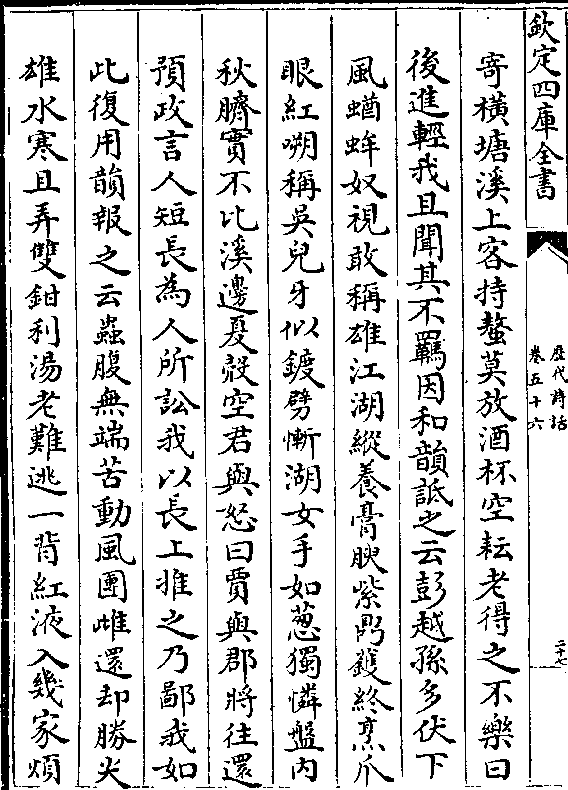 欽定四庫全書
歷代詩話
卷五十六
二十七
寄橫塘溪上客持螯莫放酒杯空耘老得之不樂曰
後進輕我且聞其不羈因和韻詆之云彭越孫多伏下
風蝤蛑奴視敢稱雄江湖縱養膏腴紫鼎鑊終烹爪
眼紅嘲稱吳兒牙似鍍劈慚湖女手如葱獨憐盤内
秋臍實不比溪邊夏殼空君與怒曰賈與郡將往還
預政言人短長為人所訟我以長上推之乃鄙我如
此復用韻報之云蟲腹無端苦動風團雌還却勝尖
雄水寒且弄雙鉗利湯老難逃一背紅液入幾家煩